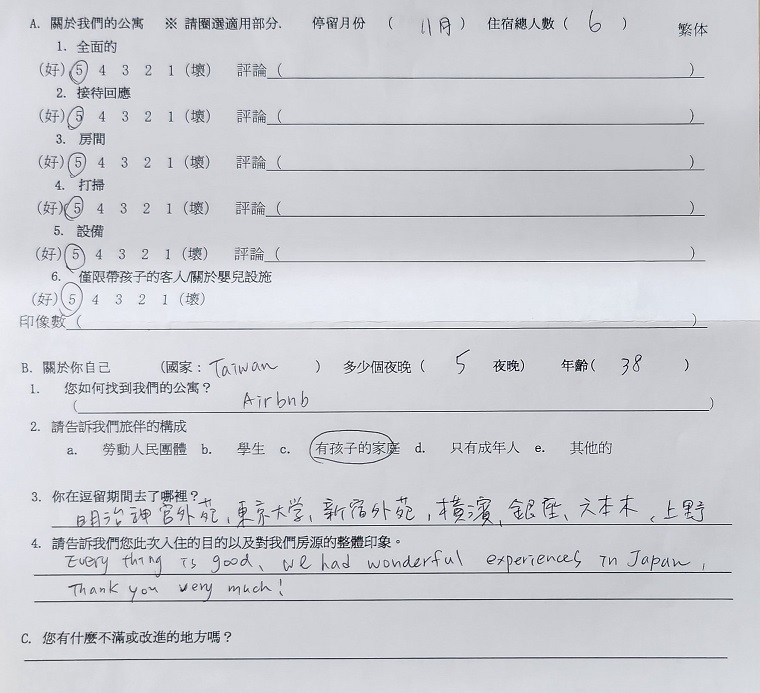 A. 關於我們的公寓 ※ 請圈選適用部分. 停留月份 ( 11月 ) 住宿總人數 ( 6 ) 繁体
1. 全面的
(好) 5 4 3 2 1 (壞) 評論 ( )
2. 接待回應
(好) 5 4 3 2 1 (壞) 評論 ( )
3. 房間
(好) 5 4 3 2 1 (壞) 評論 ( )
4. 打掃
(好) 5 4 3 2 1 (壞) 評論 ( )
5. 設備
(好) 5 4 3 2 1 (壞) 評論 ( )
6. 僅限帶孩子的客人/關於嬰兒設施
(好) 5 4 3 2 1 (壞)
印像數 ( )
B. 關於你自己 (國家: Taiwan ) 多少個夜晚 ( 5 夜晚) 年齡( 38 )
1. 您如何找到我們的公寓？
( Airbnb )
2. 請告訴我們旅伴的構成
a. 勞動人民團體 b. 學生 c. 有孩子的家庭 d. 只有成年人 e. 其他的
3. 你在逗留期間去了哪裡？
明治神宮外苑、東京大学、新宿外苑、橫濱、銀座、六本木、上野
4. 請告訴我們您此次入住的目的以及對我們房源的整體印象。
Every thing is good、we had wonderful experiences in Japan,
Thank you very much!
C. 您有什麼不滿或改進的地方嗎？